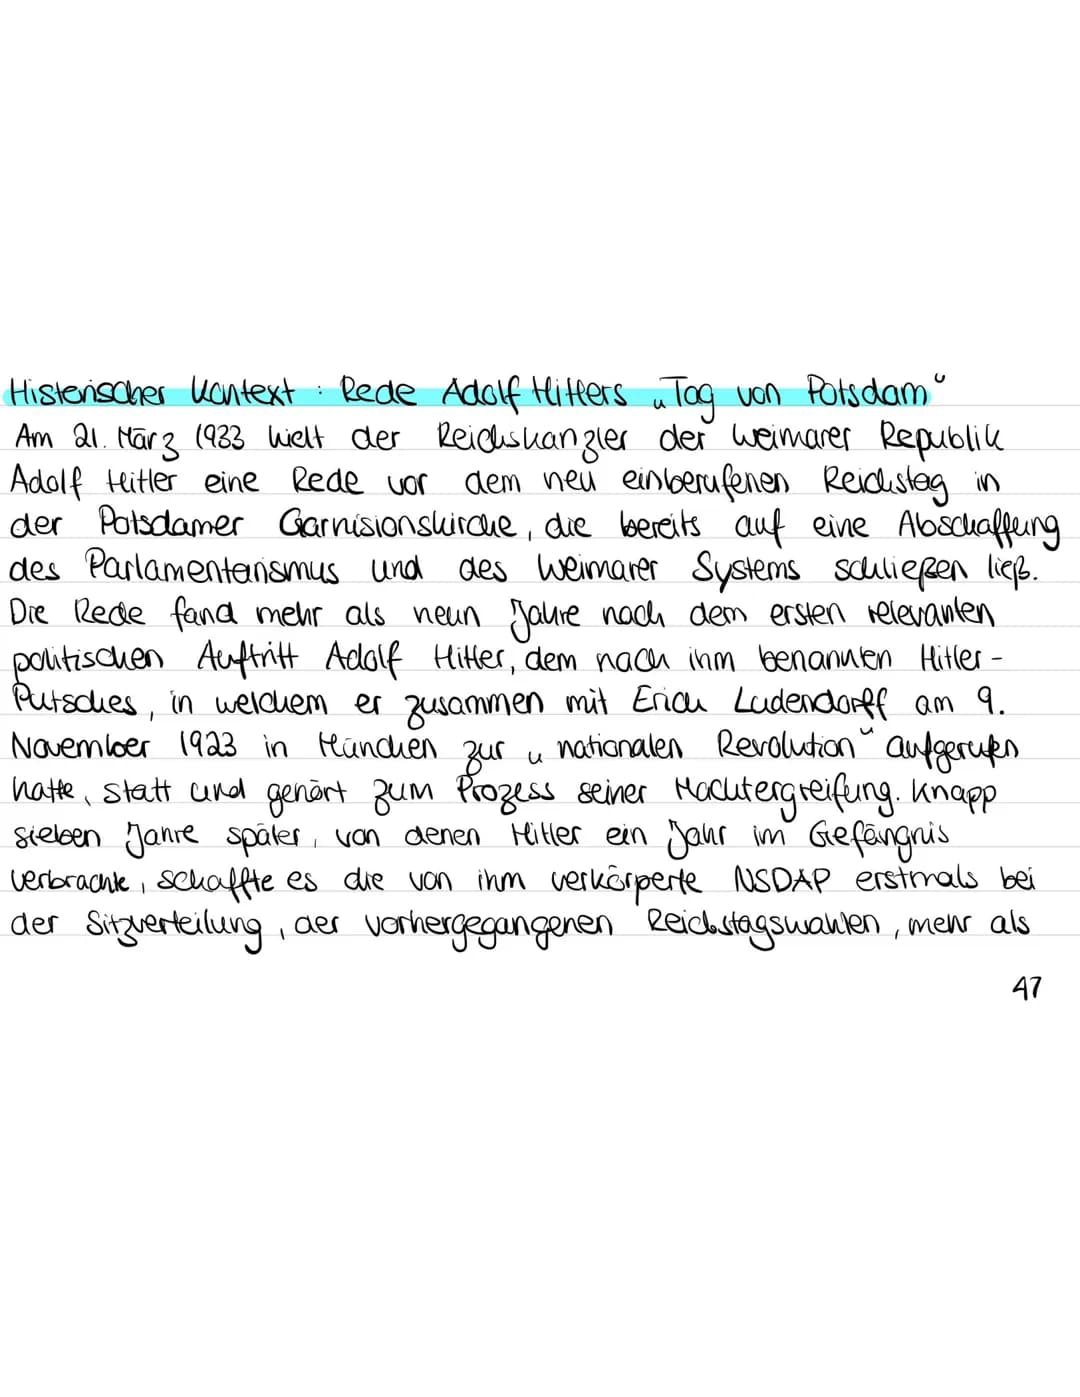 Historischer Kontext : Rede Adolf Hitlers „Tag von Potsdam“
Am 21. März 1933 hielt der Reichskanzler der Weimarer Republik
Adolf Hitler eine Rede vor dem neu einberufenen Reichstag in
der Potsdamer Garnisionskirche, die bereits auf eine Abschaffung
des Parlamentarismus und des Weimarer Systems schließen ließ.
Die Rede fand mehr als neun Jahre nach dem ersten relevanten
politischen Auftritt Adolf Hitler, dem nach ihm benannten Hitler-
Putsches, in welchem er zusammen mit Erich Ludendorff am 9.
November 1923 in München zur „nationalen Revolution“ aufgerufen
hatte, statt und gehört zum Prozess seiner Machtergreifung. Knapp
sieben Jahre später, von denen Hitler ein Jahr im Gefängnis
verbrachte, schaffte es die von ihm verkörperte NSDAP erstmals bei
der Sitzverteilung, der vorhergegangenen Reichstagswahlen, mehr als
47